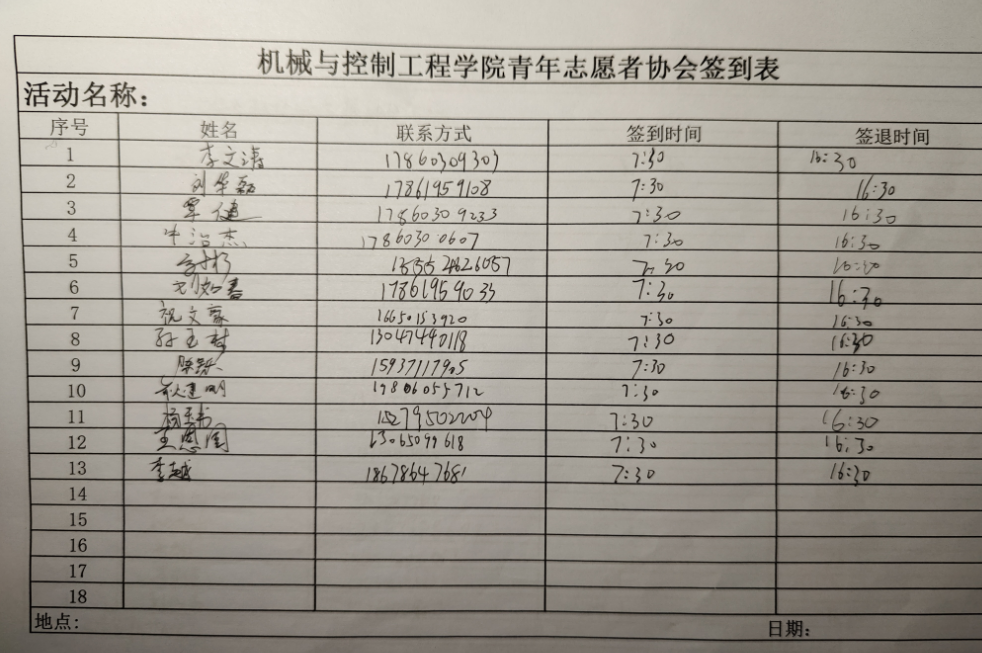 机械与控制工程学院青年志愿者协会签到表
活动名称：
序号 姓名 联系方式 签到时间 签退时间
1 李文涛 17860309303 7:30 16:30
2 刘华磊 17861959108 7:30 16:30
3 覃健 17860309233 7:30 16:30
4 牛治杰 17860300607 7:30 16:30
5 7:30 16:30
6 刘如春 17861959033 7:30 16:30
7 祝文豪 16650153920 7:30 16:30
8 孙玉村 13047490118 7:30 16:30
9 15937117905 7:30 16:30
10 17806055712 7:30 16:30
11 15279502204 7:30 16:30
12 王恩国 13065099618 7:30 16:30
13 李越 18678647681 7:30 16:30
14
15
16
17
18
地点: 日期: